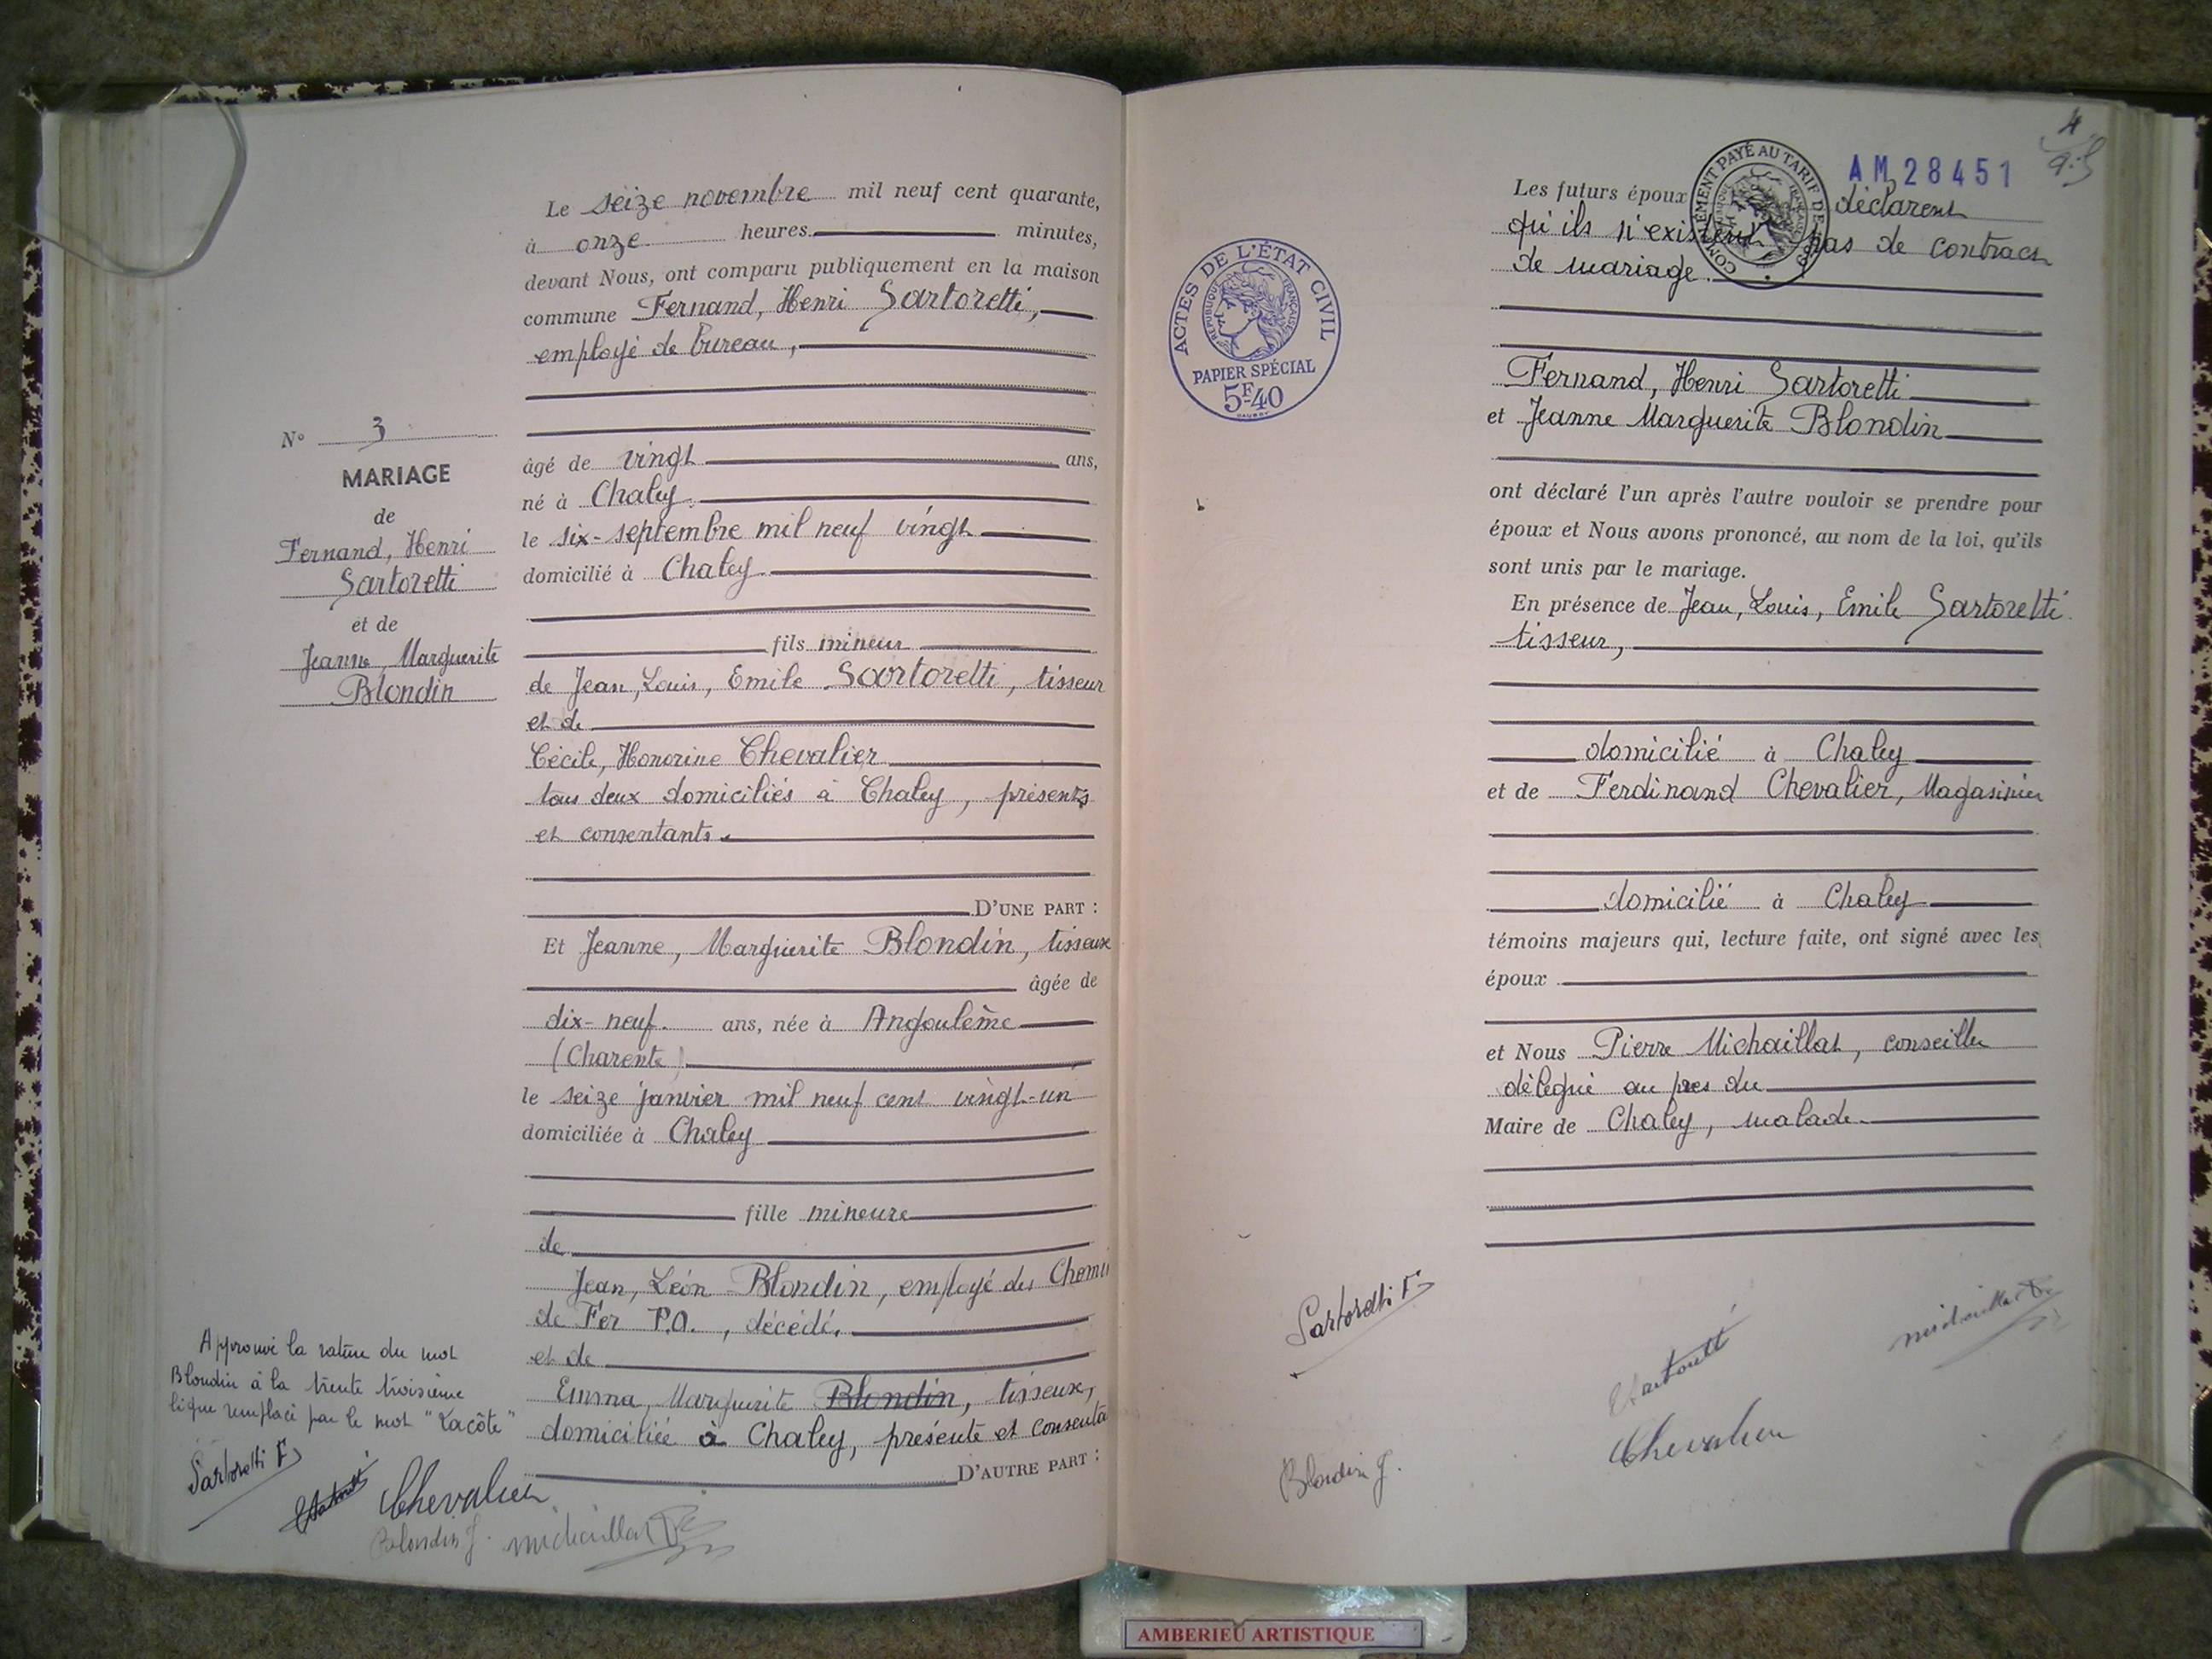 Le seize novembre mil neuf cent quarante,
à onze heures minutes,
devant Nous, ont comparu publiquement en la maison
commune Fernand, Henri Sartoretti,
employé de bureau,
âgé de vingt ans,
né à Chaley
le six-septembre mil neuf vingt
domicilié à Chaley
fils mineur
de Jean, Louis, Emile Sartoretti, tisseur
et de
Cécile, Honorine Chevalier
tous deux domiciliés à Chaley, présents
et consentants.
D'UNE PART :
Et Jeanne, Marguerite Blondin, tisseuse
âgée de
dix-neuf ans, née à Angoulème
(Charente)
le seize janvier mil neuf cent vingt-un
domiciliée à Chaley
fille mineure
de
Jean, Léon Blondin, employé des Chemi
de Fer P.O., décédé.
et de
Emma, Marguerite Blondin, tisseuse,
domiciliée à Chaley, présente et consenta
D'AUTRE PART :
N° 3
MARIAGE
de
Fernand, Henri
Sartoretti
et de
Jeanne, Marguerite
Blondin
Approuvé la rature du mot
Blondin à la trente troisième
ligne remplacé par le mot "Lacôte"
Sartoretti F
Chevalier
Blondin J.
michaillat
ACTES DE L'ÉTAT CIVIL
RÉPUBLIQUE FRANÇAISE
PAPIER SPÉCIAL
5F40
4
AM 28451
COMPLÉMENT PAYÉ AU TARIF DE
Les futurs époux déclarent
qu'ils n'existent pas de contract
de mariage.
Fernand, Henri Sartoretti
et Jeanne Marguerite Blondin
ont déclaré l'un après l'autre vouloir se prendre pour
époux et Nous avons prononcé, au nom de la loi, qu'ils
sont unis par le mariage.
En présence de Jean, Louis, Emile Sartoretti
tisseur,
domicilié à Chaley
et de Ferdinand Chevalier, Magasinier
domicilié à Chaley
témoins majeurs qui, lecture faite, ont signé avec les
époux
et Nous Pierre Michaillat, conseiller
délégué au pres du
Maire de Chaley, malade.
Sartoretti F
michaillat
Chevalier
Blondin J.
AMBERIEU ARTISTIQUE